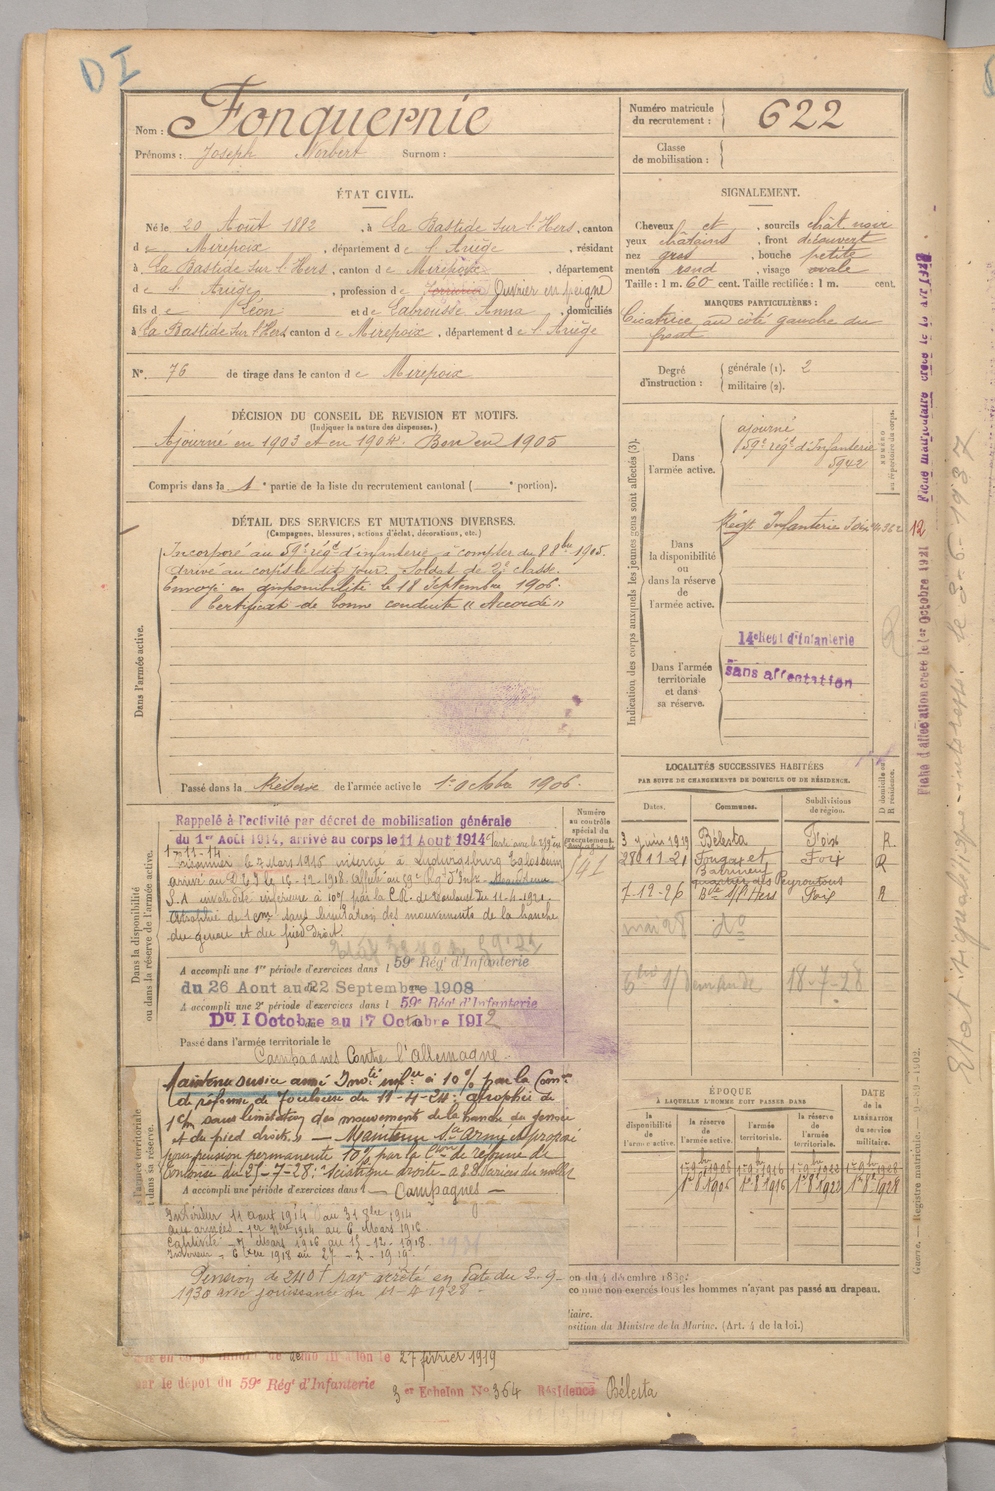 DI
Nom : Fonquernie
Prénoms : Joseph Norbert Surnom :
Numéro matricule du recrutement : 622
Classe de mobilisation :
ÉTAT CIVIL.
Né le 20 Août 1882, à La Bastide sur l'Hers, canton
de Mirepoix, département de l'Ariège, résidant
à La Bastide sur l'Hers, canton de Mirepoix, département
de l'Ariège, profession de Ouvrier en peigne
fils de Léon et de Labrousse Anna, domiciliés
à La Bastide sur l'Hers canton de Mirepoix, département de l'Ariège
N° 76 de tirage dans le canton de Mirepoix
SIGNALEMENT.
Cheveux et, sourcils chât noir
yeux châtains, front découvert
nez gros, bouche petite
menton rond, visage ovale
Taille : 1 m. 60 cent. Taille rectifiée : 1 m. cent.
MARQUES PARTICULIÈRES :
Cicatrice au côté gauche du
front
Degré d'instruction : générale (1). 2
militaire (2).
DÉCISION DU CONSEIL DE REVISION ET MOTIFS.
(Indiquer la nature des dispenses.)
Ajourné en 1903 et en 1904. Bon en 1905
Compris dans la 1e partie de la liste du recrutement cantonal ( e portion).
DÉTAIL DES SERVICES ET MUTATIONS DIVERSES.
(Campagnes, blessures, actions d'éclat, décorations, etc.)
Dans l'armée active.
Incorporé au 59e régt d'infanterie à compter du 8 8bre 1905.
Arrivé au corps le dit jour. Soldat de 2e classe.
Envoyé en disponibilité le 18 Septembre 1906.
Certificat de bonne conduite "Accordé"
Passé dans la Réserve de l'armée active le 1er octobre 1906.
Indication des corps auxquels les jeunes gens sont affectés (3).
NUMÉRO au répertoire du corps.
Dans l'armée active.
ajourné
59e régt d'Infanterie
5942
Dans la disponibilité ou dans la réserve de l'armée active.
Régt Infanterie Foix
12
Dans l'armée territoriale et dans sa réserve.
14e Regt d'Infanterie
sans affectation
LOCALITÉS SUCCESSIVES HABITÉES
PAR SUITE DE CHANGEMENTS DE DOMICILE OU DE RÉSIDENCE.
Dates. Communes. Subdivisions de région. D domicile ou R résidence.
3 juin 1919 Bélesta Foix R.
28 11-21 Fougax et Barrineuf Foix R
7-12-26 Bde s/l'Hers Foix R
mai 28 do
s/ demande 18-7-28
Dans la disponibilité ou dans la réserve de l'armée active.
Numéro au contrôle spécial du recrutement.
Rappelé à l'activité par décret de mobilisation générale
du 1er Août 1914, arrivé au corps le 11 Août 1914
1-11-14
Prisonnier le 7 mars 1916 interné à Ludwigsburg
arrivé au le 16-12-1918
S.A. invalidité inférieure à 10% par la C.R. de Toulouse du 11-4-1924.
Atrophie de 1cm sans limitation des mouvements de la hanche
du genou et du pied droit.
A accompli une 1re période d'exercices dans l 59e Régt d'Infanterie
du 26 Aout au 22 Septembre 1908
A accompli une 2e période d'exercices dans l 59e Régt d'Infanterie
Du 1 Octobre au 17 Octobre 1912
Passé dans l'armée territoriale le
Campagnes Contre l'allemagne
l'armée territoriale dans sa réserve.
Maintenu service armé Invté infre à 10% par la Comon
de réforme de Toulouse du 11-4-24 : atrophie de
1cm sans limitation des mouvements de la hanche du genou
et du pied droits — Maintenu sce Armé et proposé
pour pension permanente 10% par la Con de réforme de
Toulouse du 25-7-28 : sciatique droite
A accompli une période d'exercices dans l
— Campagnes —
Intérieur 11 aout 1914 au 31 8bre 1914
aux armées — 1er Nbre 1914 au 6 Mars 1916
Captivité — 7 Mars 1916 au 15-12-1918
Intérieur — 16 Xbre 1918 au 27-2-1919
Pension de 240f par arrêté en date du 2-9-
1930 avec jouissance du 11-4-1928
ÉPOQUE
À LAQUELLE L'HOMME DOIT PASSER DANS
la disponibilité de l'armée active. la réserve de l'armée active. l'armée territoriale. la réserve de l'armée territoriale.
DATE de la LIBÉRATION du service militaire.
1er 8bre 1906 1er 8bre 1916 1er 8bre 1922 1er 8bre 1928
comme non exercés tous les hommes n'ayant pas passé au drapeau.
position du Ministre de la Marine. (Art. 4 de la loi.)
le 27 février 1919
par le dépot du 59e Régt d'Infanterie
3er Echelon No 364 Résidence Bélesta
Fiche d'affectation créée le 1er Octobre 1921
Fiche matriculaire créée le
Guerre. — Registre matricule.